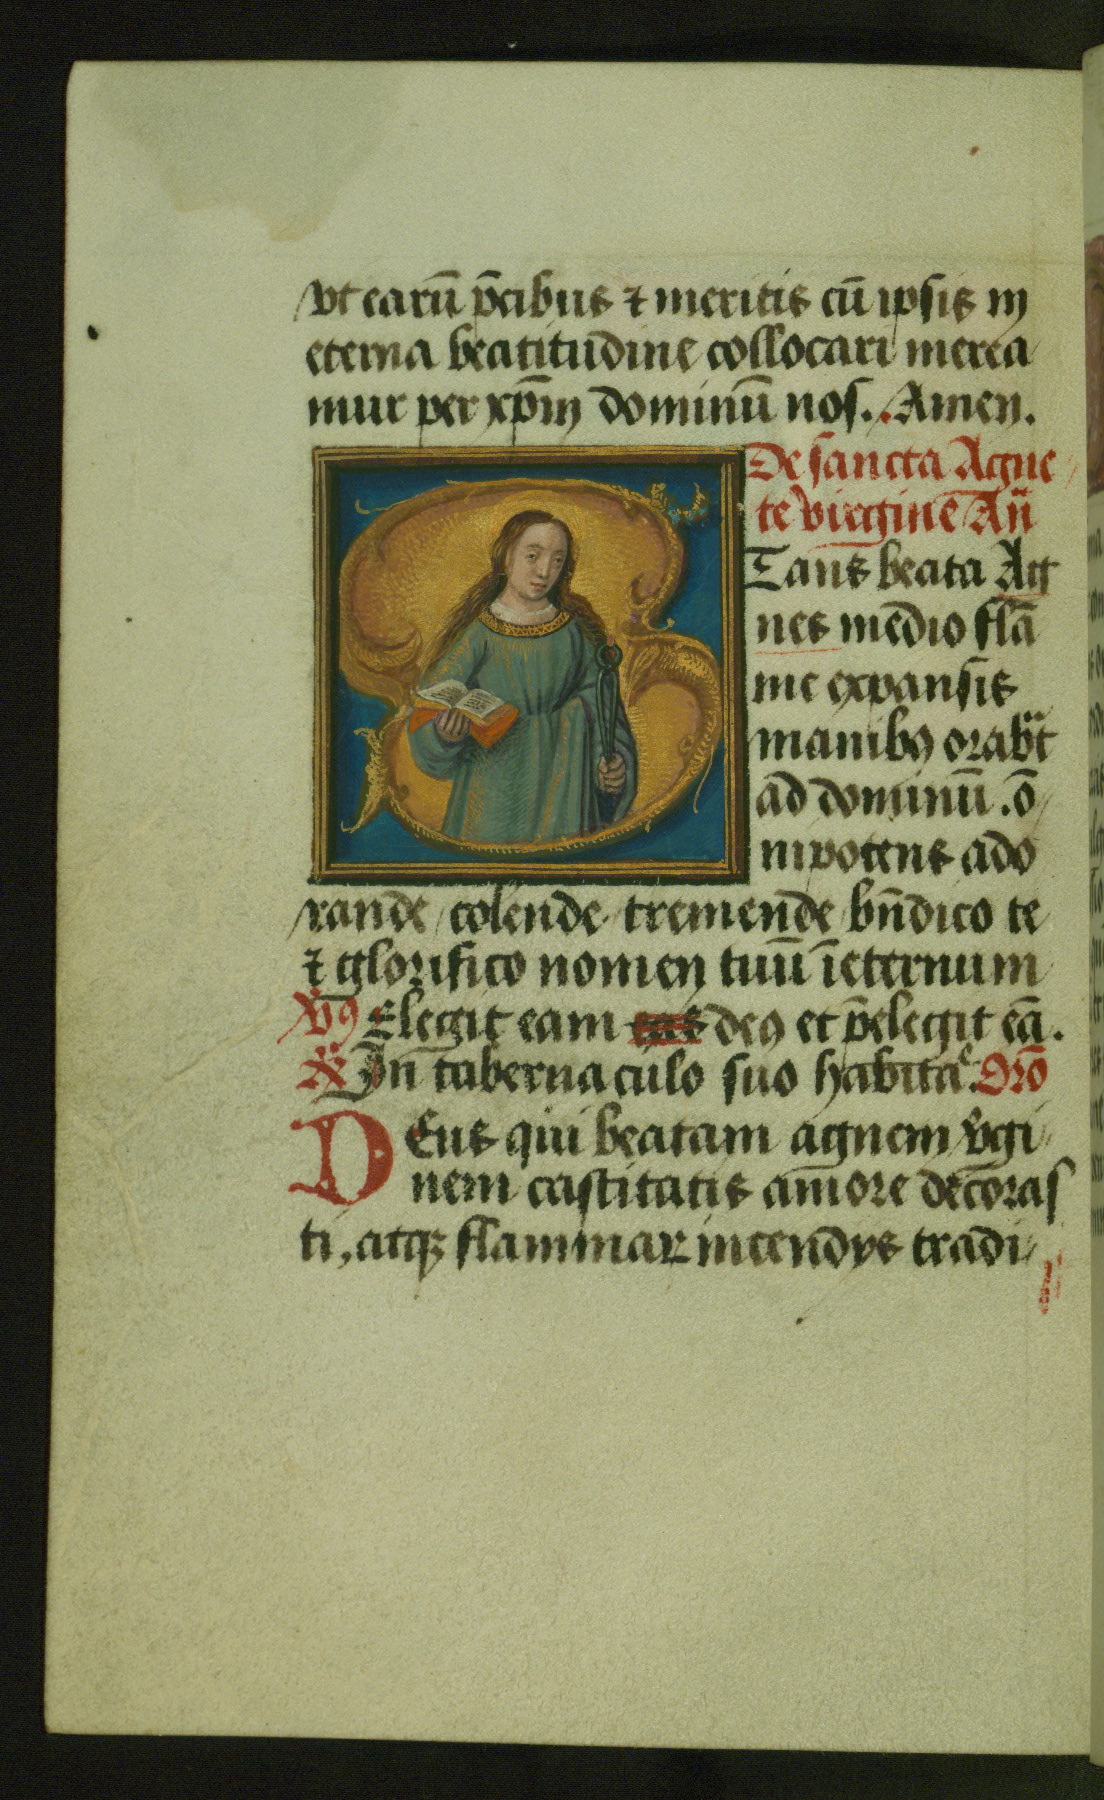 vt earū p̄cibus ⁊ meritis cū ipsis in
eterna beatitudine collocari merea
mur per xp̄m dominū nos. Amen.
De sancta Agne
te virgine Añ
Stans beata Ag
nes medio flā
me expansis
manibꝯ orabᵃt
ad dominū . ō
nipotens ado
rande colende tremende bn̄dico te
⁊ glorifico nomen tuū īeternum
Vꝯ Elegit eam eus deꝯ et p̄elegit eā.
℟ In tabernaculo suo habitaᵉ. Orō
Deus qui beatam agnem v̄gi
nem castitatis amore decoras
ti, atqꝫ flammaꝝ incendys tradi